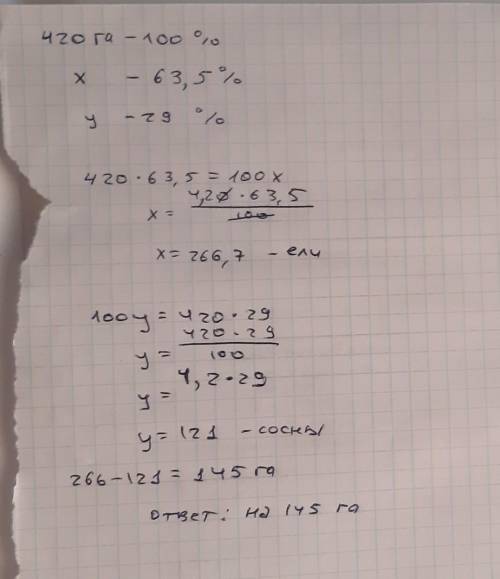 420 га - 100 %
х - 63,5 %
у - 29 %
420 · 63,5 = 100 х
х = 4,20 · 63,5 / 100
х = 266,7 - ели
100 у = 420 · 29
у = 420 · 29 / 100
у = 4,2 · 29
у = 121 - сосны
266 - 121 = 145 га
ответ: на 145 га